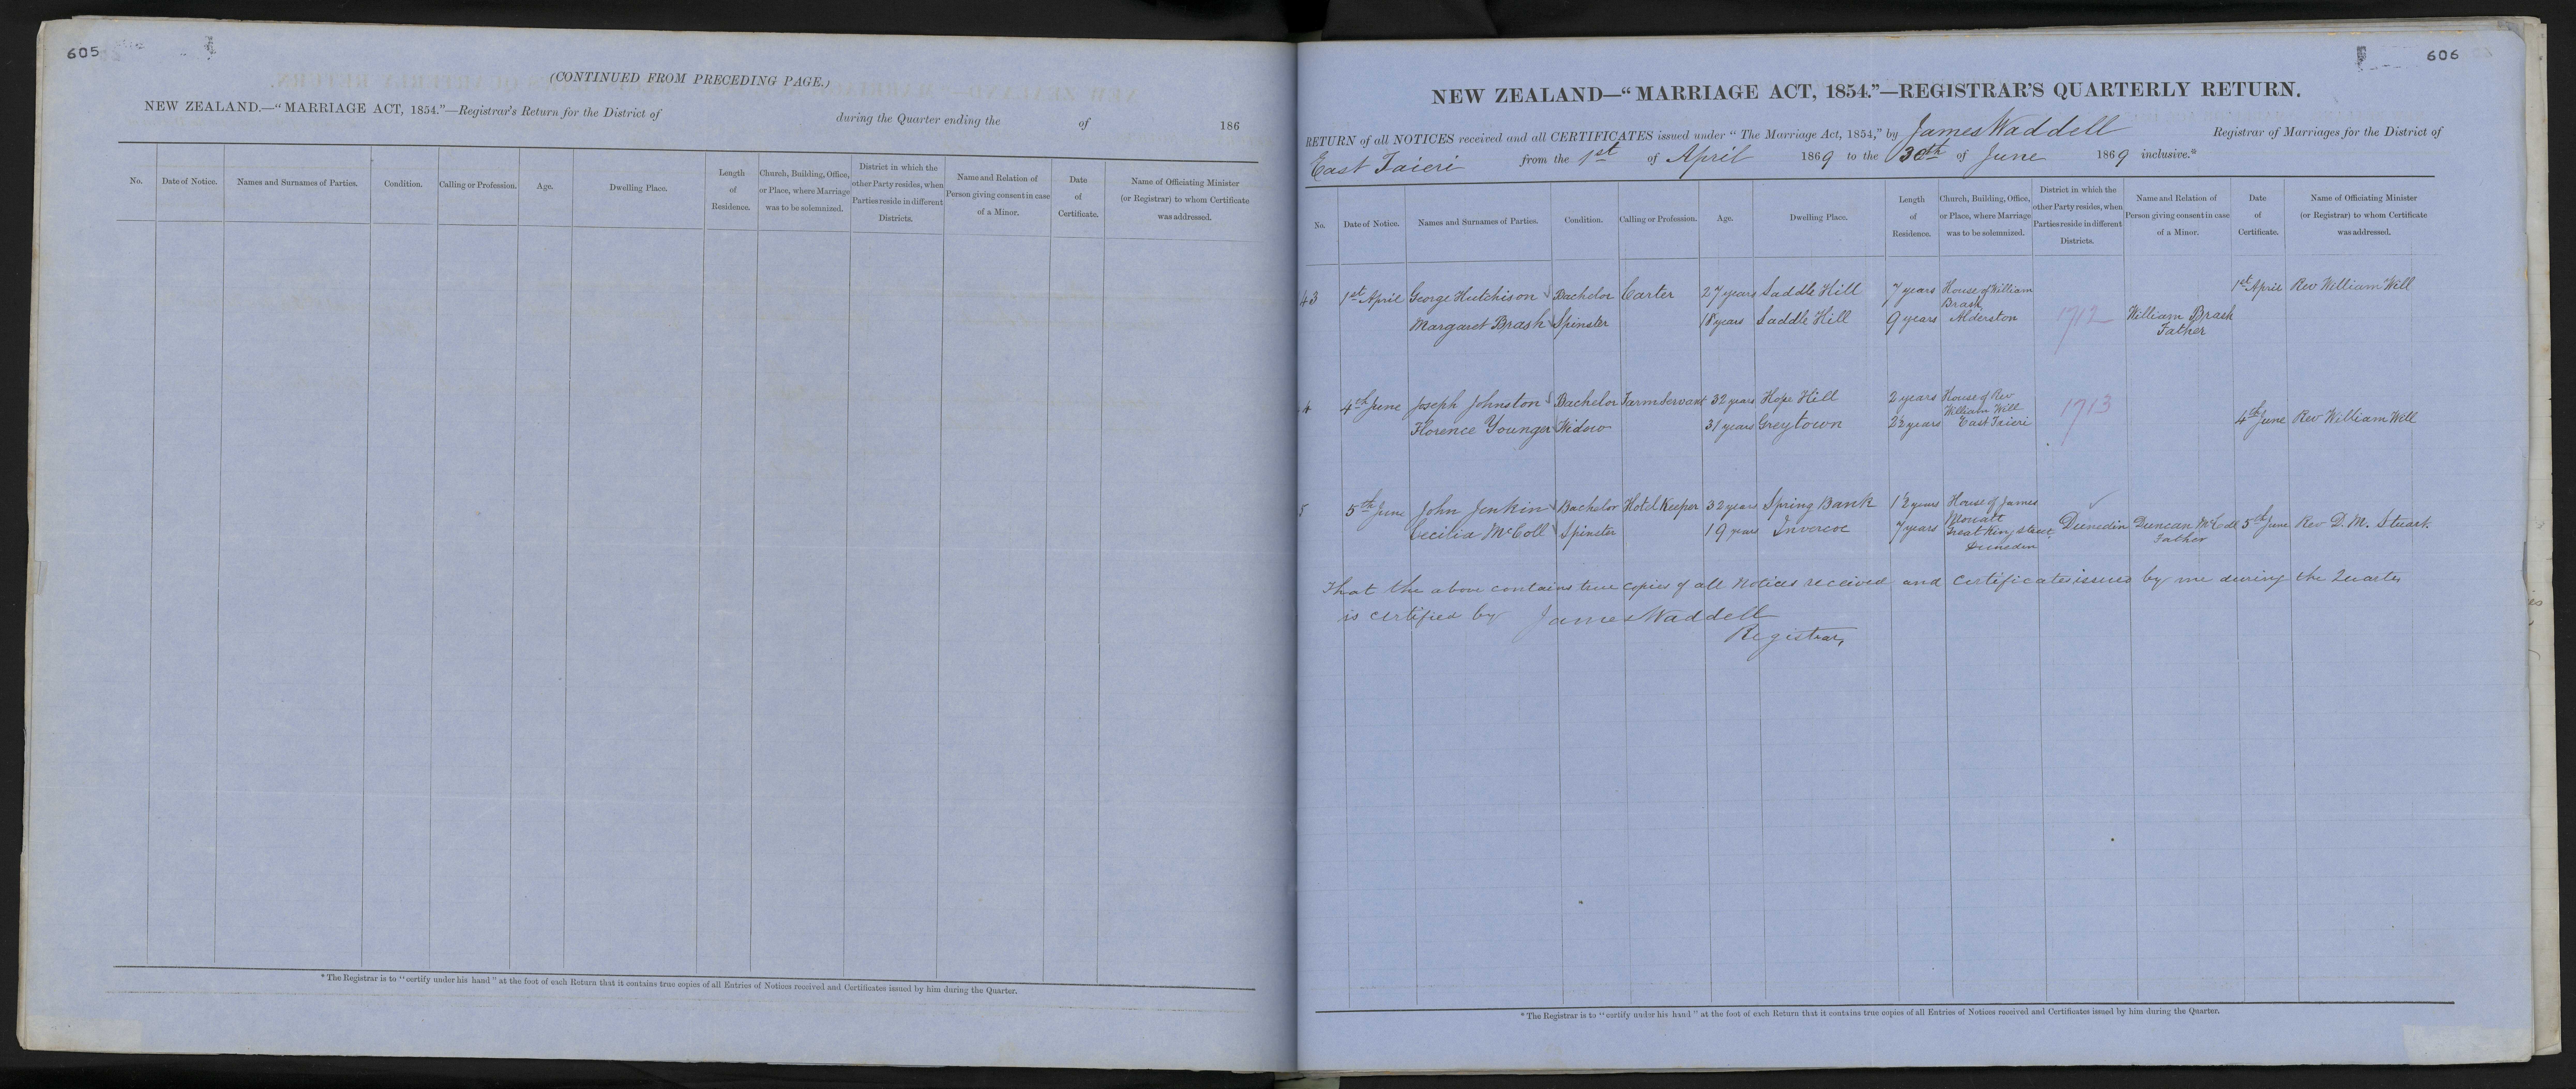 605
(CONTINUED FROM PRECEDING PAGE.)
NEW ZEALAND.—"MARRIAGE ACT, 1854."—Registrar's Return for the District of during the Quarter ending the of 186
No. Date of Notice. Names and Surnames of Parties. Condition. Calling or Profession. Age. Dwelling Place. Length of Residence. Church, Building, Office, or Place, where Marriage was to be solemnized. District in which the other Party resides, when Parties reside in different Districts. Name and Relation of Person giving consent in case of a Minor. Date of Certificate. Name of Officiating Minister (or Registrar) to whom Certificate was addressed.
* The Registrar is to "certify under his hand" at the foot of each Return that it contains true copies of all Entries of Notices received and Certificates issued by him during the Quarter.
606
NEW ZEALAND—"MARRIAGE ACT, 1854."—REGISTRAR'S QUARTERLY RETURN.
RETURN of all NOTICES received and all CERTIFICATES issued under "The Marriage Act, 1854," by James Waddell Registrar of Marriages for the District of
East Taieri from the 1st of April 1869 to the 30th of June 1869 inclusive.*
No. Date of Notice. Names and Surnames of Parties. Condition. Calling or Profession. Age. Dwelling Place. Length of Residence. Church, Building, Office, or Place, where Marriage was to be solemnized. District in which the other Party resides, when Parties reside in different Districts. Name and Relation of Person giving consent in case of a Minor. Date of Certificate. Name of Officiating Minister (or Registrar) to whom Certificate was addressed.
43 1st April George Hutchison Bachelor Carter 27 years Saddle Hill 7 years House of William 1st April Rev William Will
Brash
Margaret Brash Spinster 18 years Saddle Hill 9 years Alderston 1712 William Brash
Father
4 4th June Joseph Johnston Bachelor Farm Servant 32 years Hope Hill 2 years House of Rev 1713
William Will
Florence Younger Widow 31 years Greytown 2½ years East Taieri 4th June Rev William Will
5 5th June John Jenkin Bachelor Hotel Keeper 32 years Spring Bank 1½ years House of James
Cecilia McColl Spinster 19 years Invercoe 7 years Great King Street Dunedin Duncan McColl 5th June Rev D. M. Stuart.
Dunedin Father
That the above contains true copies of all Notices received and Certificates issued by me during the Quarter
is certified by James Waddell
Registrar
* The Registrar is to "certify under his hand" at the foot of each Return that it contains true copies of all Entries of Notices received and Certificates issued by him during the Quarter.